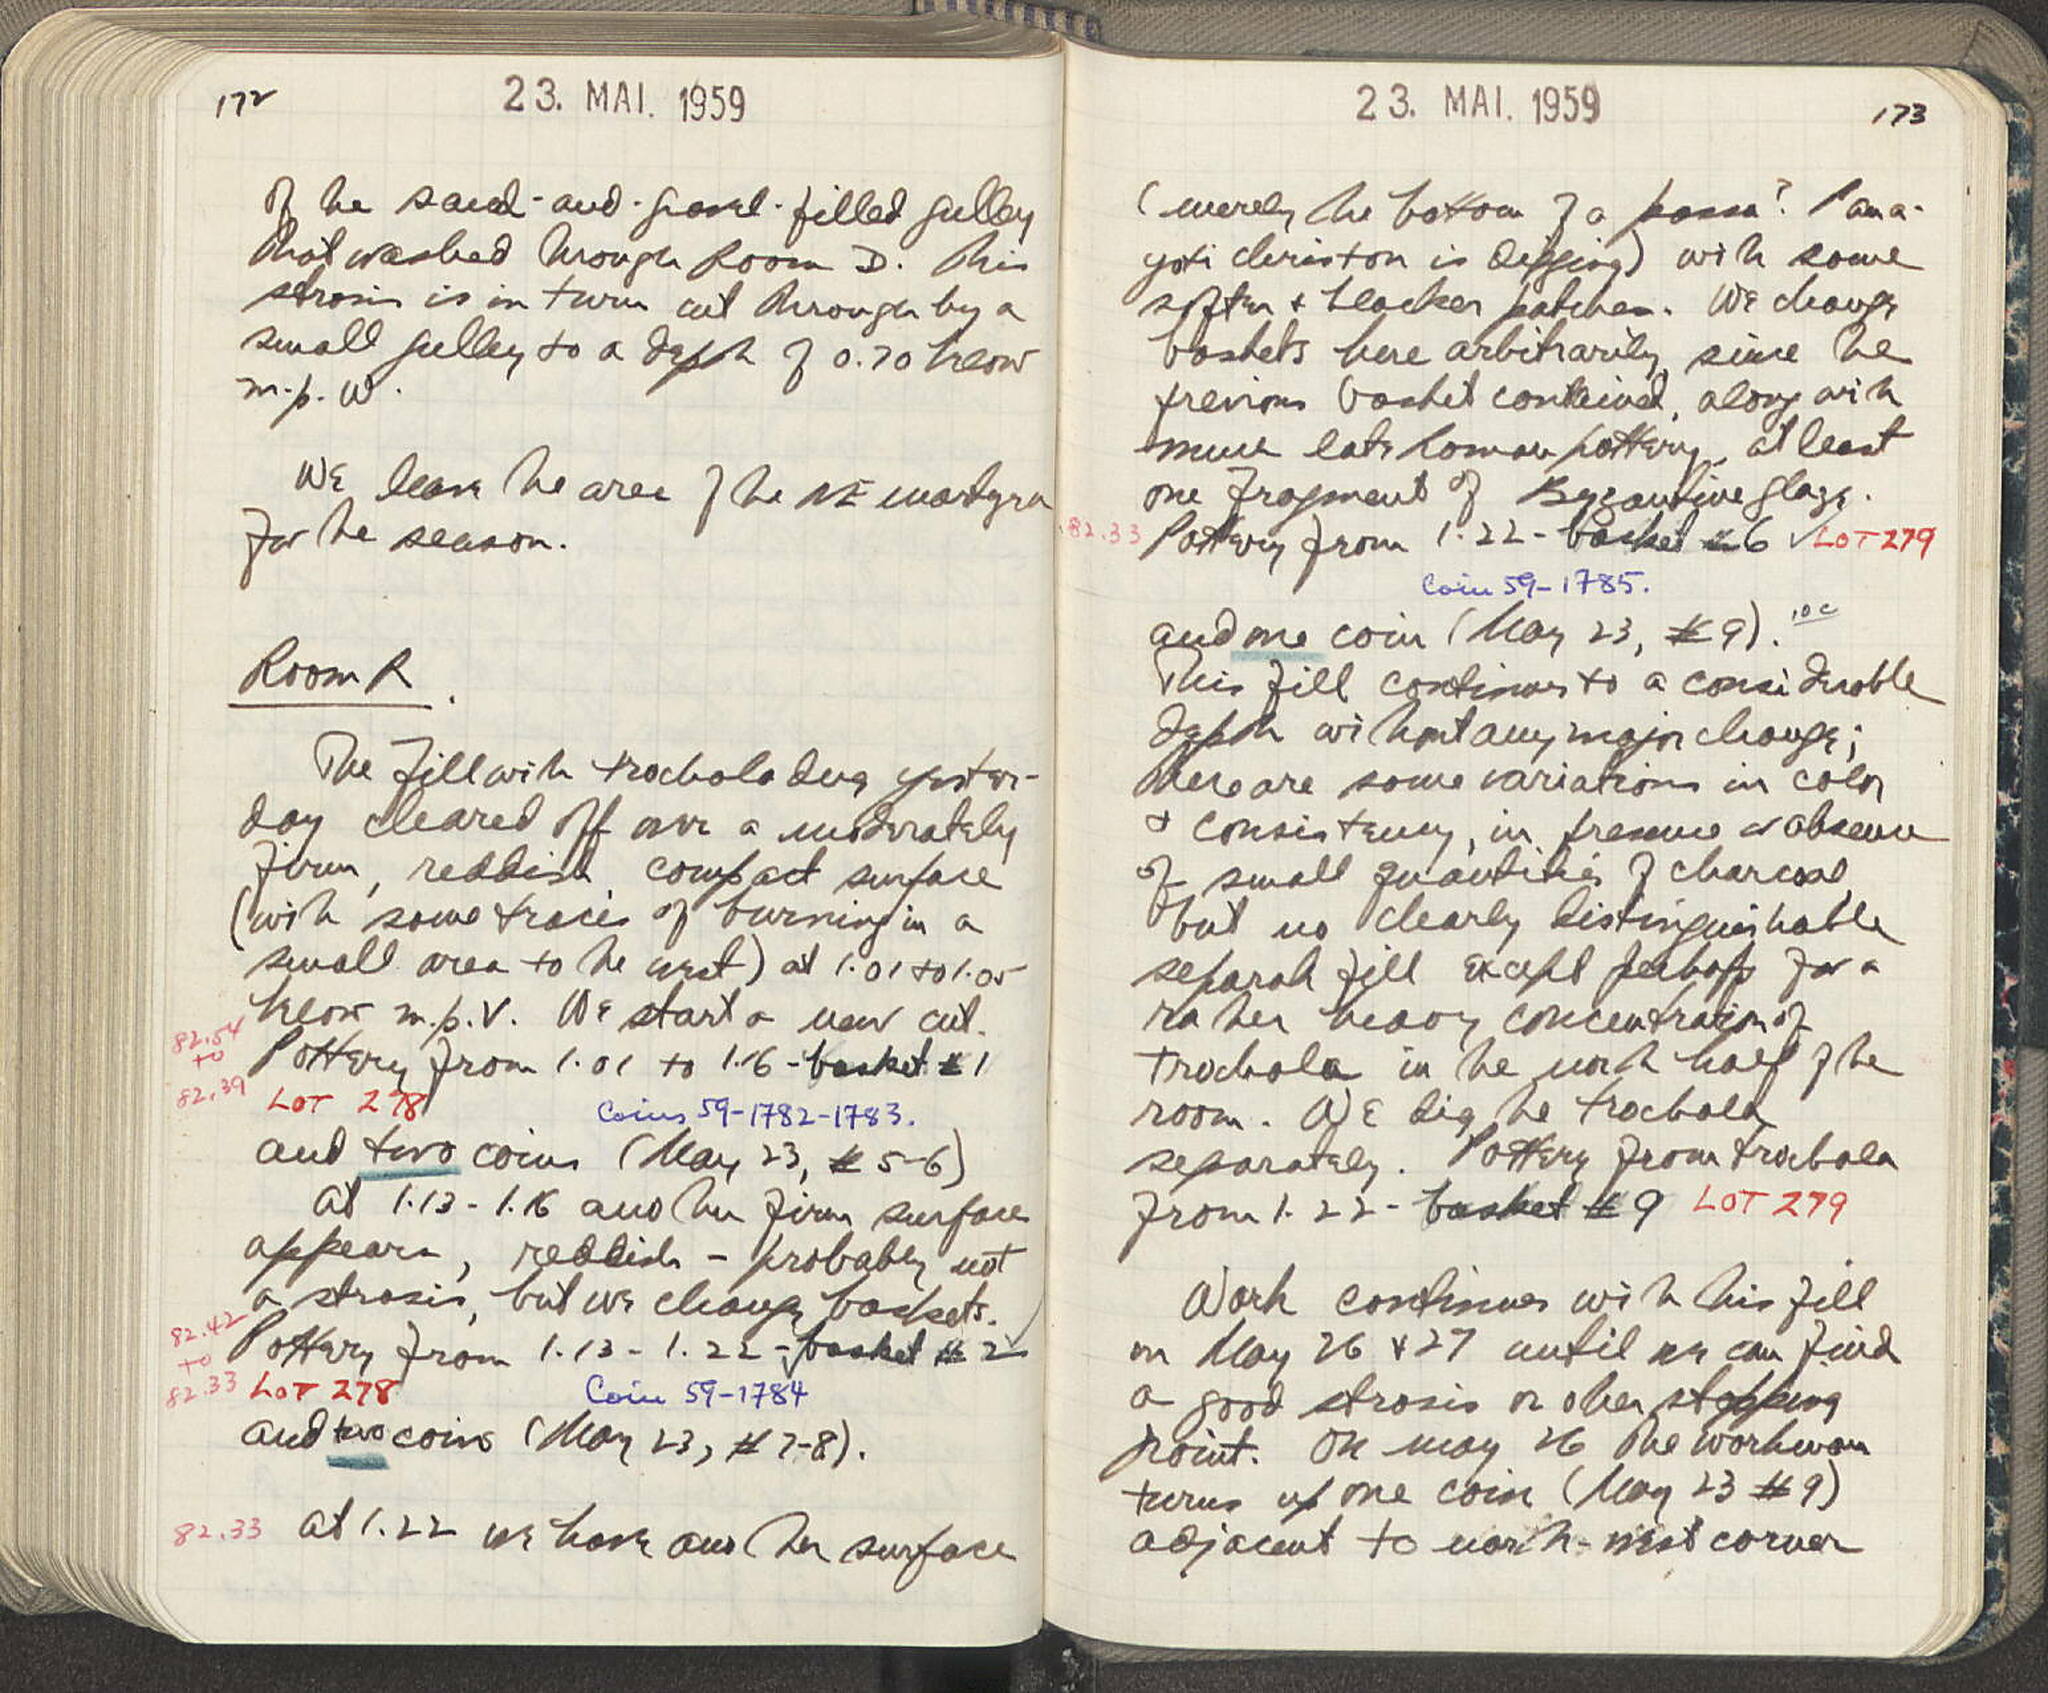 172
23. MAI. 1959
of the sand-and-gravel-filled gulley
that washed through Room D. This
strosis is in turn cut through by a
small gulley to a depth of 0.70 below
m.p. W.
We leave the area of the NE martyra
for the season.
Room R.
The fill with trochala dug yester-
day cleared off over a moderately
firm, reddish compact surface
(with some traces of burning in a
small area to the west) at 1.01 to 1.05
below m.p. V. We start a new cut.
82.54
to
82.39
Pottery from 1.01 to 1.16 - basket #1
LOT 278
Coins 59-1782-1783.
and two coins (May 23, #5-6)
At 1.13 - 1.16 another firm surface
appears, reddish - probably not
a strosis, but we change baskets.
82.42
to
82.33
Pottery from 1.13 - 1.22 - basket #2 ✓
LOT 278
Coin 59-1784
and two coins (May 23, #7-8).
82.33 At 1.22 we have another surface
23. MAI. 1959
173
(merely the bottom of a passa? Pana-
yoti Christou is digging) with some
softer + blacker patches. We change
baskets here arbitrarily, since the
previous basket contained, along with
much late Roman pottery, at least
one fragment of Byzantine glaze.
82.33 Pottery from 1.22 - basket #6 ✓ LOT 279
Coin 59-1785.
and one coin (May 23, #9).
This fill continues to a considerable
depth without any major change;
there are some variations in color
+ consistency, in presence or absence
of small quantities of charcoal,
but no clearly distinguishable
separate fill except perhaps for a
rather heavy concentration of
trochala in the north half of the
room. We dig the trochala
separately. Pottery from trochala
from 1.22 - basket #9 LOT 279
Work continues with this fill
on May 26 + 27 until we can find
a good strosis or other stopping
point. On May 26 the workman
turns up one coin (May 23 #9)
adjacent to north-west corner